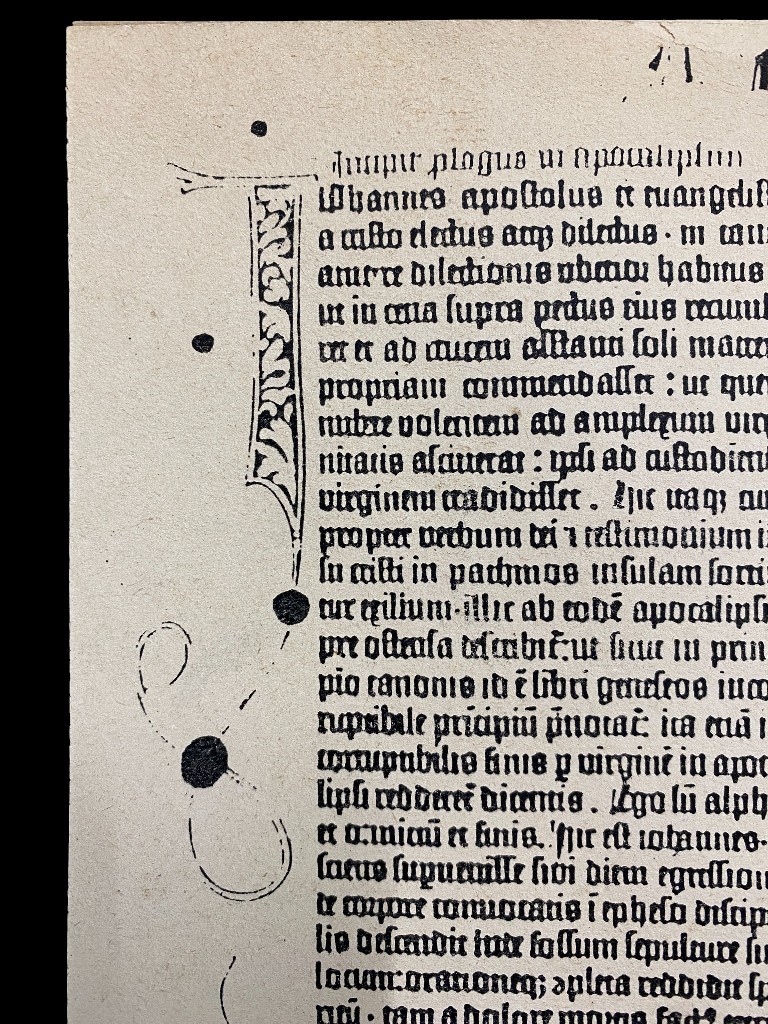 Incipit plogus in apocalipsim
Iohannes apostolus et euangelis
a cristo electus atqʒ dilectus · in tan
amore dilectionis uberior habitus
ut in cena supra pectus eius recumb
ret et ad crucem astanti soli matre
propriam commendasset : ut que
nubere volentem ad amplexum virg
nitatis asciuerat : ipsi ad custodiend
virginem tradidisset . Hic itaqʒ cu
propter verbum dei ⁊ testimonium i
su cristi in pathmos insulam sorti
tur exilium · illic ab eodē apocalipsi
pre ostensa describit̄ : ut sicut in prin
pio canonis id ē libri geneseos inco
ruptibile prīcipiū p̄notat̄ : ita etiā i
corruptibilis finis ꝑ virginē in apoc
lipsi redderet̄ dicentis . Ego sū alph
et o : iniciū et finis . Hic est iohannes ·
sciens supuenisse sibi diem egression
de corpore conuocatis ī epheso discip
lis descendit in defossum sepulture su
locum : orationeqʒ ꝯpleta reddidit sp
ritū · tam a dolore mortis